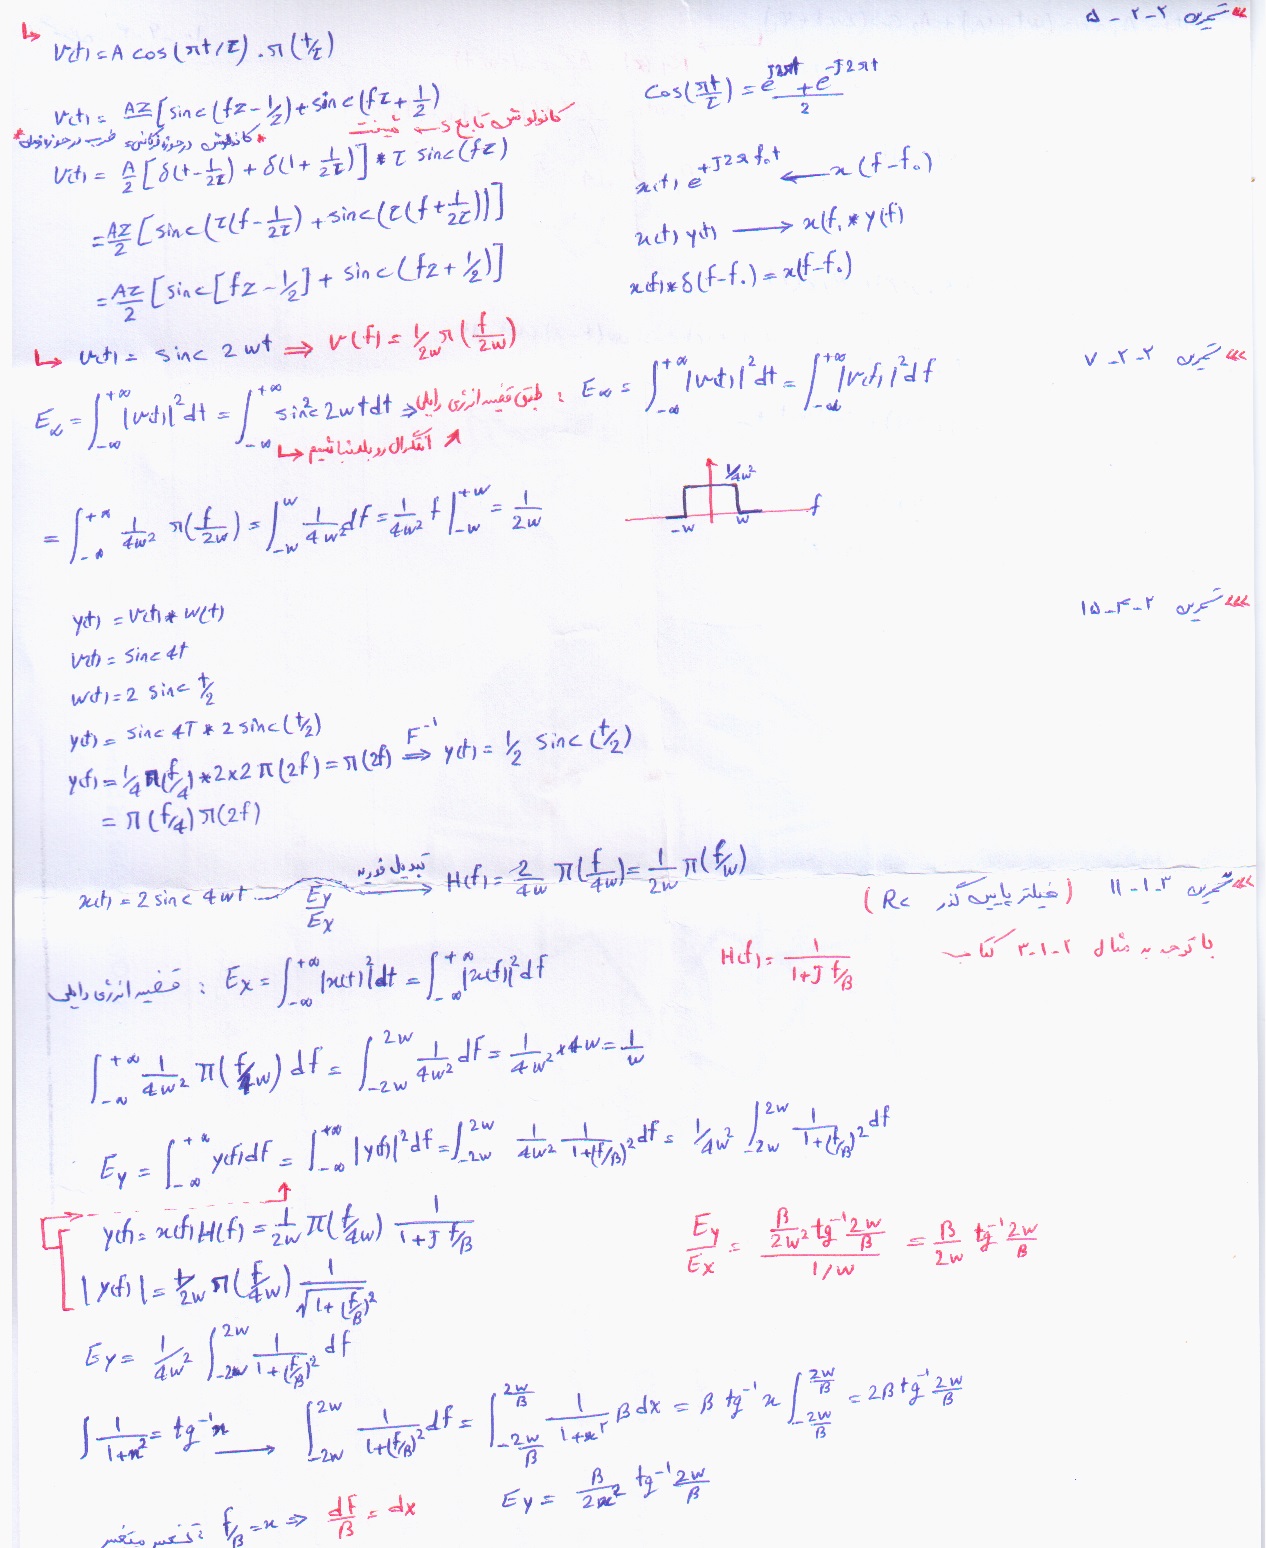 >>> تمرین ۲-۲-۵
v(t) = A cos(πt/τ) . π(t/τ)
cos(πt/τ) = (e^{j2πt} + e^{-j2πt})/2
v(t) = Aτ/2 [sinc(fτ - 1/2) + sinc(fτ + 1/2)
کانولوشن تابع δ شیفت
* کانولوشن در حوزه فرکانس = ضرب در حوزه زمان *
v(t) = A/2 [δ(t - 1/2τ) + δ(1 + 1/2τ)] * τ sinc(fτ)
x(t) e^{+j2πf₀t} ← x(f-f₀)
= Aτ/2 [sinc(τ(f - 1/2τ) + sinc(τ(f + 1/2τ))]
x(t) y(t) → x(f) * y(f)
= Aτ/2 [sinc[fτ - 1/2] + sinc(fτ + 1/2)]
x(f) * δ(f-f₀) = x(f-f₀)
>>> تمرین ۲-۲-۷
v(t) = sinc 2wt ⇒ v(f) = 1/2w π(f/2w)
E∞ = ∫_{-∞}^{+∞} |v(t)|² dt = ∫_{-∞}^{+∞} sinc² 2wt dt ⇒ طبق قضیه انرژی رایلی : E∞ = ∫_{-∞}^{+∞} |v(t)|² dt = ∫_{-∞}^{+∞} |v(f)|² df
انتگرال رو بلد نباشیم
= ∫_{-∞}^{+∞} 1/4w² π(f/2w) = ∫_{-w}^{w} 1/4w² df = 1/4w² f |_{-w}^{+w} = 1/2w
1/4w²
-w w f
>>> تمرین ۲-۴-۱۵
y(t) = v(t) * w(t)
v(t) = sinc 4t
w(t) = 2 sinc t/2
y(t) = sinc 4T * 2 sinc(t/2)
y(f) = 1/4 π(f/4) * 2×2 π(2f) = π(2f) ⇒ F⁻¹ y(t) = 1/2 sinc(t/2)
= π(f/4) π(2f)
>>> تمرین ۳-۱-۱۱ (فیلتر پایین گذر Rc)
x(t) = 2 sinc 4wt Ey/Ex تبدیل فوریه → H(f) = 2/4w π(f/4w) = 1/2w π(f/w)
با توجه به مثال ۲-۱-۳ کتاب H(f) = 1/(1+j f/β)
قضیه انرژی رایلی : Ex = ∫_{-∞}^{+∞} |x(t)|² dt = ∫_{-∞}^{+∞} |x(f)|² df
∫_{-∞}^{+∞} 1/4w² π(f/4w) df = ∫_{-2w}^{2w} 1/4w² df = 1/4w² × 4w = 1/w
Ey = ∫_{-∞}^{+∞} y(f) df = ∫_{-∞}^{+∞} |y(f)|² df = ∫_{-2w}^{2w} 1/4w² 1/(1+(f/β)²) df = 1/4w² ∫_{-2w}^{2w} 1/(1+(f/β)²) df
y(f) = x(f) H(f) = 1/2w π(f/4w) 1/(1+j f/β)
Ey/Ex = (β/2w² tg⁻¹ 2w/β)/(1/w) = β/2w tg⁻¹ 2w/β
|y(f)| = 1/2w π(f/4w) 1/√(1+(f/β)²)
Ey = 1/4w² ∫_{-2w}^{2w} 1/(1+(f/β)²) df
∫ 1/(1+x²) = tg⁻¹x → ∫_{-2w}^{2w} 1/(1+(f/β)²) df = ∫_{-2w/β}^{2w/β} 1/(1+x²) β dx = β tg⁻¹ x ∫_{-2w/β}^{2w/β} = 2β tg⁻¹ 2w/β
تغییر متغیر : f/β = x ⇒ df/β = dx
Ey = β/2w² tg⁻¹ 2w/β